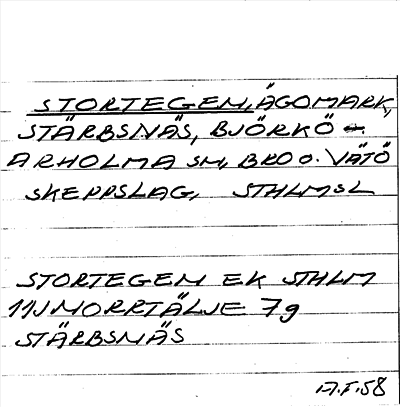 STORTEGEN, ÄGOMARK,
STÄRBSNÄS, BJÖRKÖ -
ARHOLMA SN, BRO O. VÄTÖ
SKEPPSLAG, STHLMSL
STORTEGEN EK STHLM
11J NORRTÄLJE 7g
STÄRBSNÄS